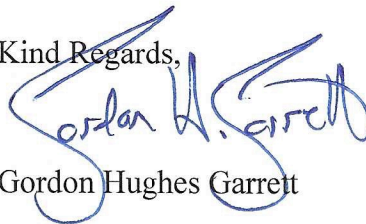 Kind Regards,
Gordon H. Garrett
Gordon Hughes Garrett